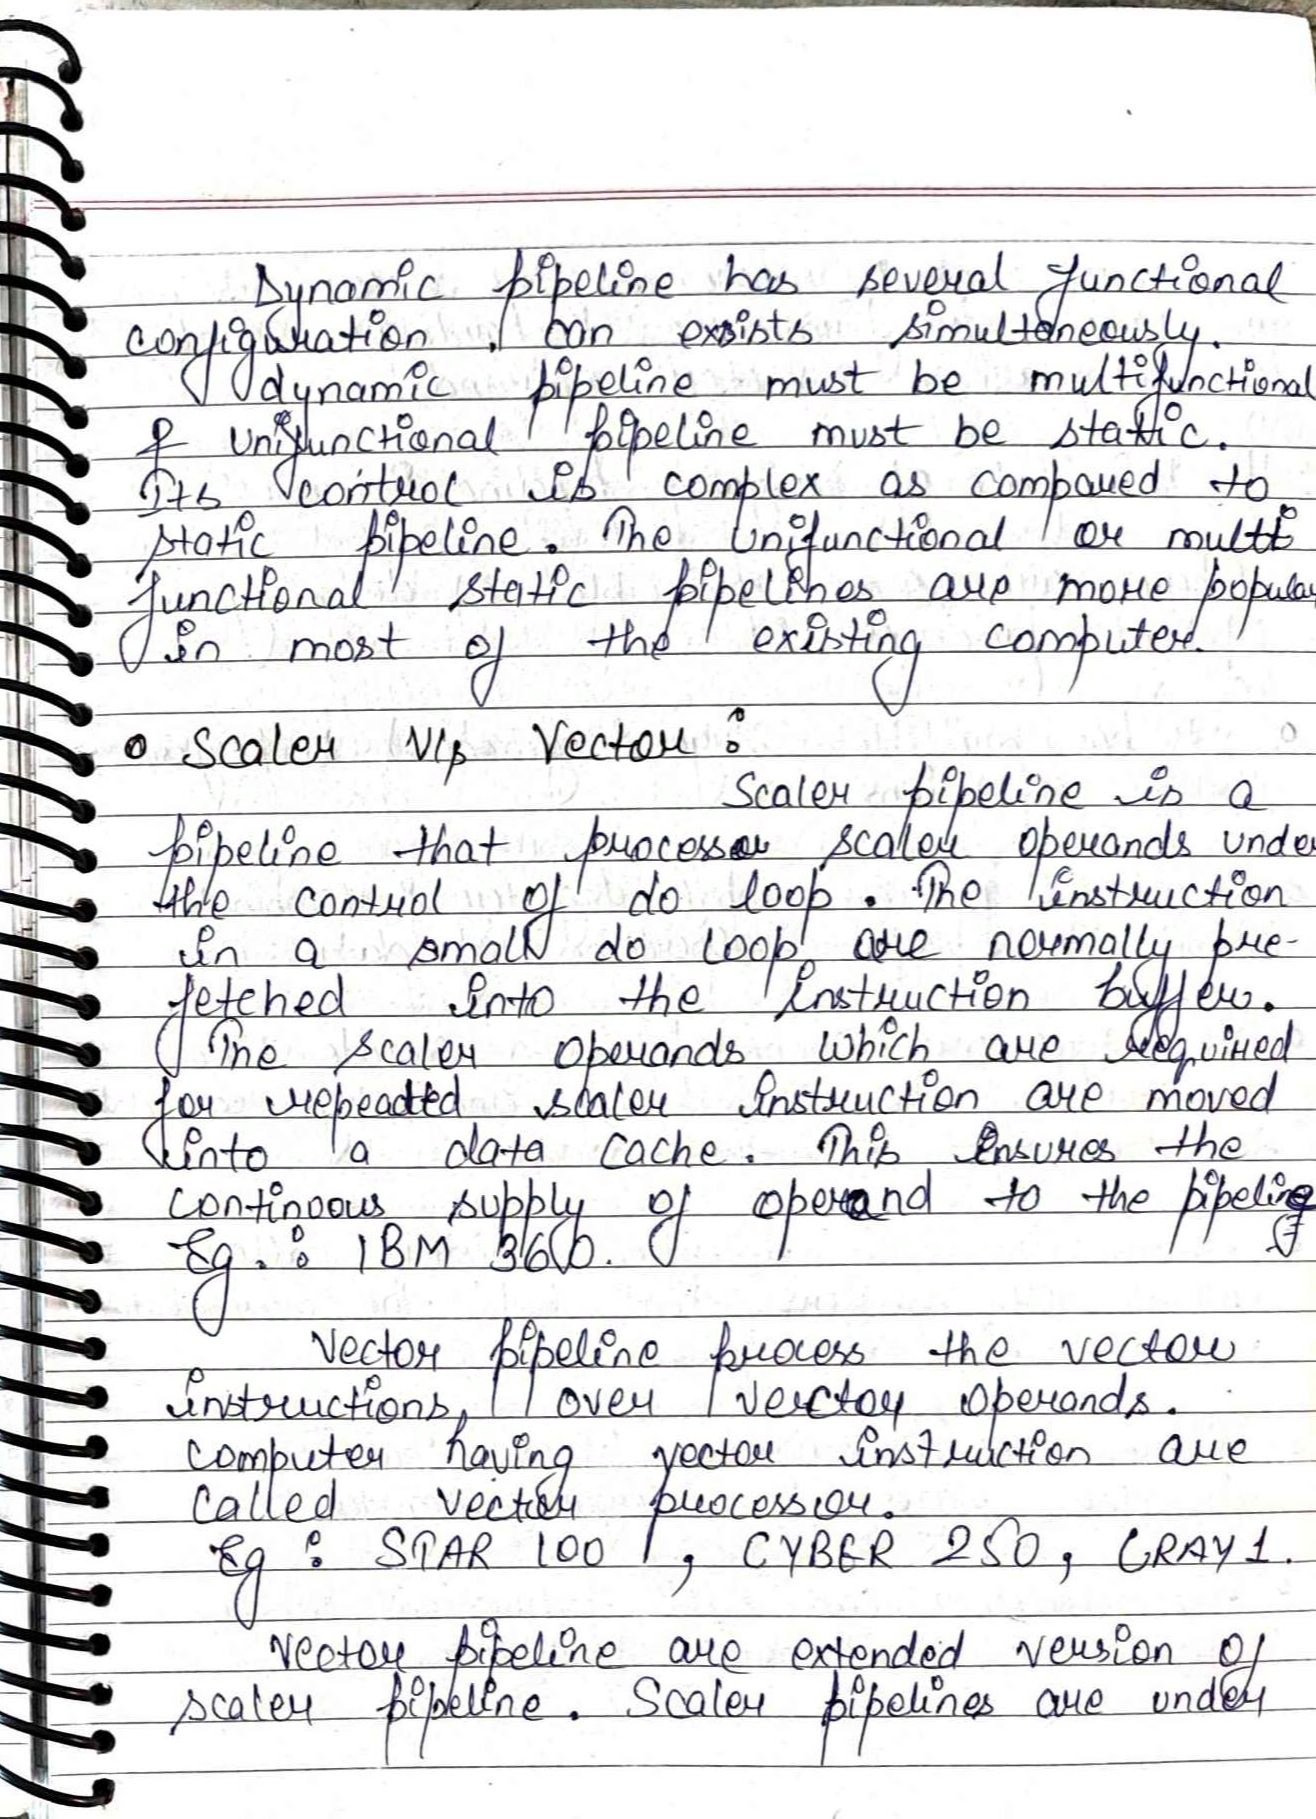 Dynamic pipeline has several functional
configuration. can exsists simultaneously.
dynamic pipeline must be multifunctional
& unifunctional pipeline must be static.
Its control is complex as compared to
static pipeline. The unifunctional or multi
functional static pipelines are more popular
in most of the existing computer.
• Scaler v/s Vector :
Scaler pipeline is a
pipeline that processor scaler operands under
the control of do loop. The instruction
in a small do loop are normally pre-
fetched into the instruction buffer.
The scaler operands which are required
for repeadted scaler instruction are moved
into a data cache. This ensures the
continoous supply of operand to the pipeline
Eg. : IBM 360.
Vector pipeline process the vector
instructions, over verctor operands.
computer having vector instruction are
called vector processor.
Eg : STAR 100, CYBER 250, CRAY 1.
Vector pipeline are extended version of
scaler pipeline. Scaler pipelines are under